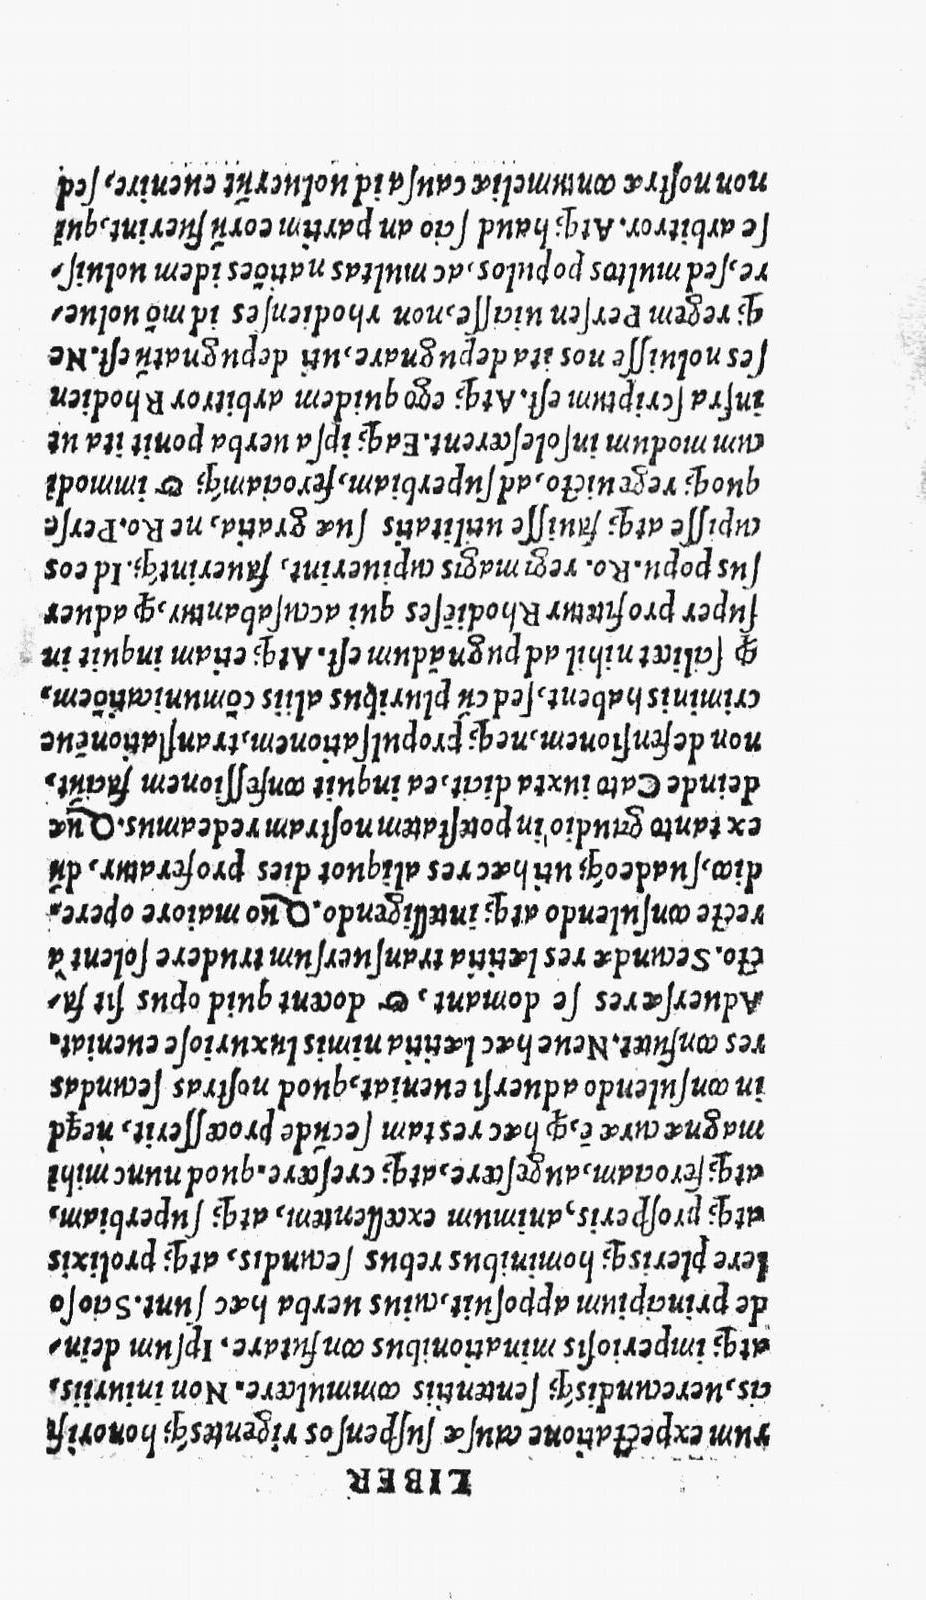 LIBER
rum expectatione cauſæ ſuſpenſos rigenteſq; honorifi
cis, uerecundiſq; ſententiis commulcere. Non iniuriis,
atq; imperioſis minationibus confutare. Ipſum dein,
de principium appoſuit, cuius uerba hæc ſunt. Scio ſo
lere pleriſq; hominibus rebus ſecundis, atq; prolixis
atq; proſperis, animum excellentem, atq; ſuperbiam,
atq; ferociam, augeſcere, atq; creſcere. quod nunc mihi
magnæ curæ ē, ꝙ hæc res tam ſecūde proceſſerit, neqd
in conſulendo aduerſi eueniat, quod noſtras ſecundas
res confutet. Neue hæc lætitia nimis luxurioſe eueniat.
Aduerſæ res ſe domant, & docent quid opus ſit fa,
cto. Secundæ res lætitia tranſuerſum trudere ſolent à
recte conſulendo atq; intelligendo. Quo maiore opere.
dico, ſuadeoq; uti hæc res aliquot dies proferatur, dū
ex tanto gaudio in poteſtatem noſtram redeamus. Quæ
deinde Cato iuxta dicit, ea inquit confeſſionem faciūt,
non defenſionem, neq; propulſationem, tranſlationēue
criminis habent, ſed cū pluribus aliis cōmunicatiōem,
ꝙ ſcilicet nihil ad pugnādum eſt. Atq; etiam inquit in
ſuper profitetur Rhodiēſes qui accuſabantur, ꝙ aduer
ſus popu. Ro. regi magis cupiuerint, fauerintq;. Id eos
cupiſſe atq; fauiſſe utilitatis ſuæ gratia, ne Ro. Perſe
quoq; rege uicto, ad ſuperbiam, ferociamq; & immodi
cum modum inſoleſcerent. Eaq; ipſa uerba ponit ita ut
infra ſcriptum eſt. Atq; ego quidem arbitror Rhodien
ſes noluiſſe nos ita depugnare, uti depugnatū eſt. Ne
q; regem Perſen uiciſſe, non rhodienſes id mō uolue,
re, ſed multos populos, ac multas natiōes idem uoluiſ,
ſe arbitror. Atq; haud ſcio an partim eorū fuerint, qui
non noſtræ contumeliæ cauſa id uoluerīt euenire, ſed